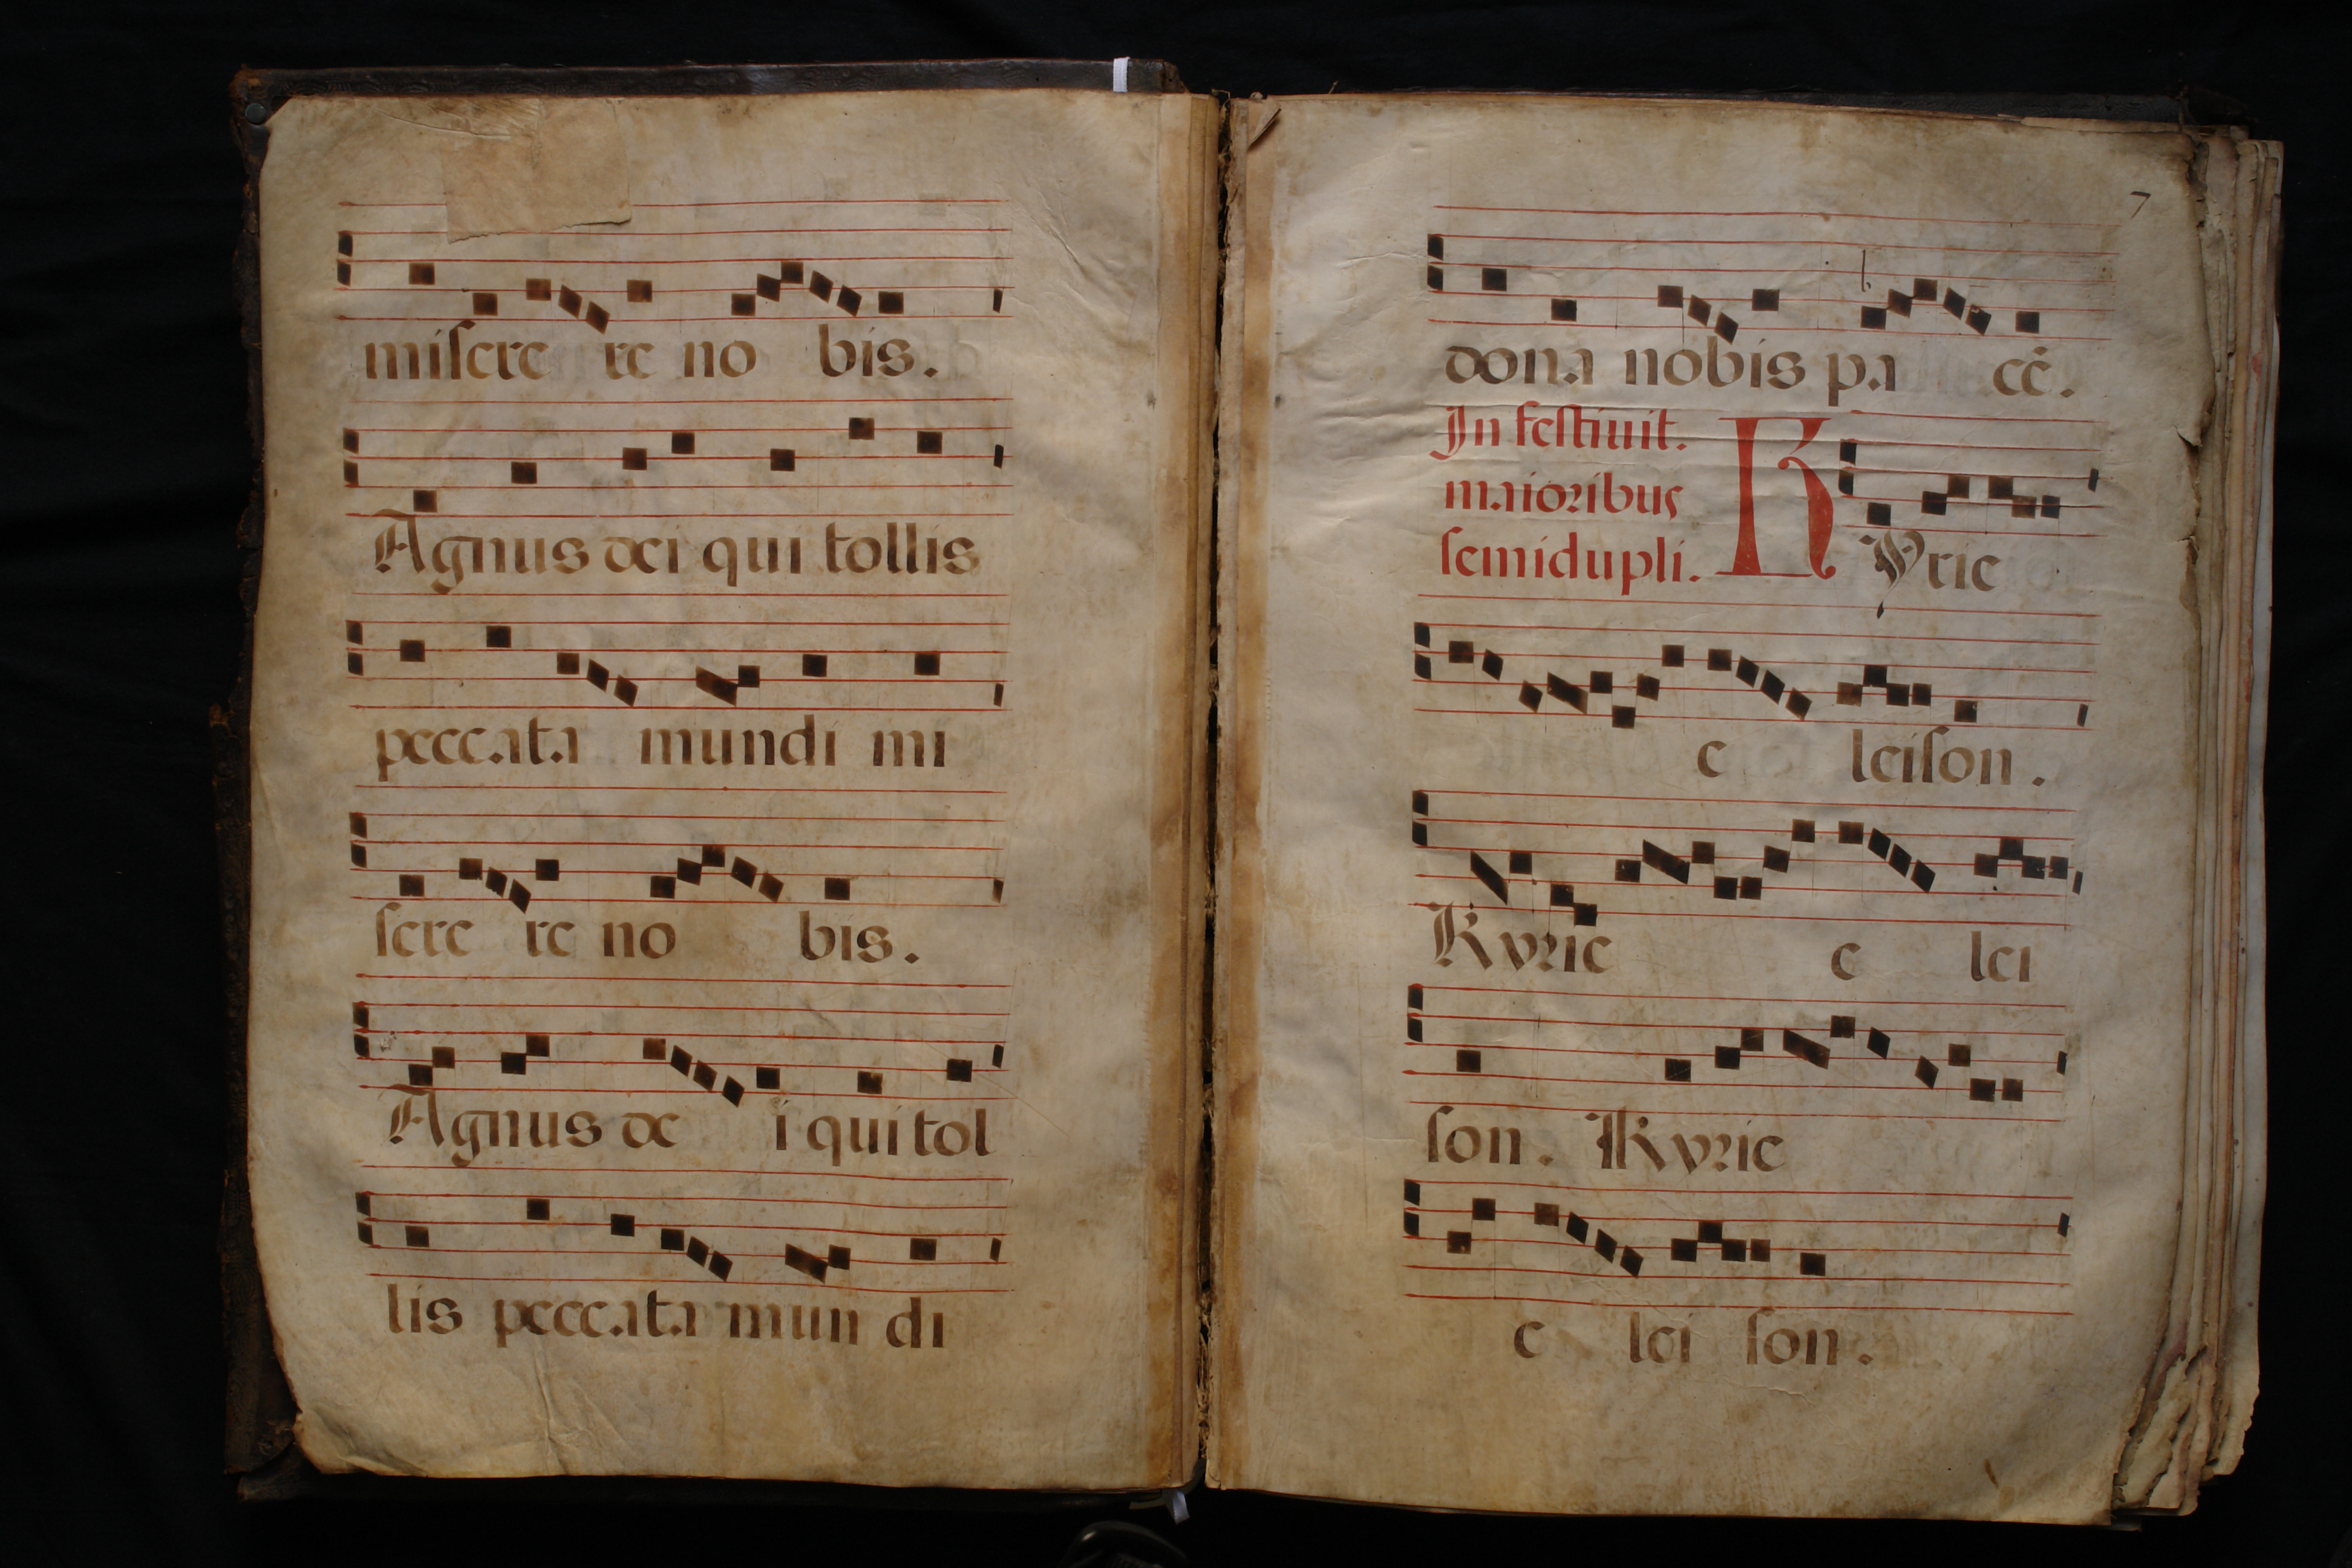 misere re no bis.
Agnus dei qui tollis
peccata mundi mi
sere re no bis.
Agnus de i qui tol
lis peccata mun di
7
dona nobis pa cē.
In festiuit.
maioribus
semidupli.
K Yrie
e leison.
Kyrie e lei
son. Kyrie
e lei son.